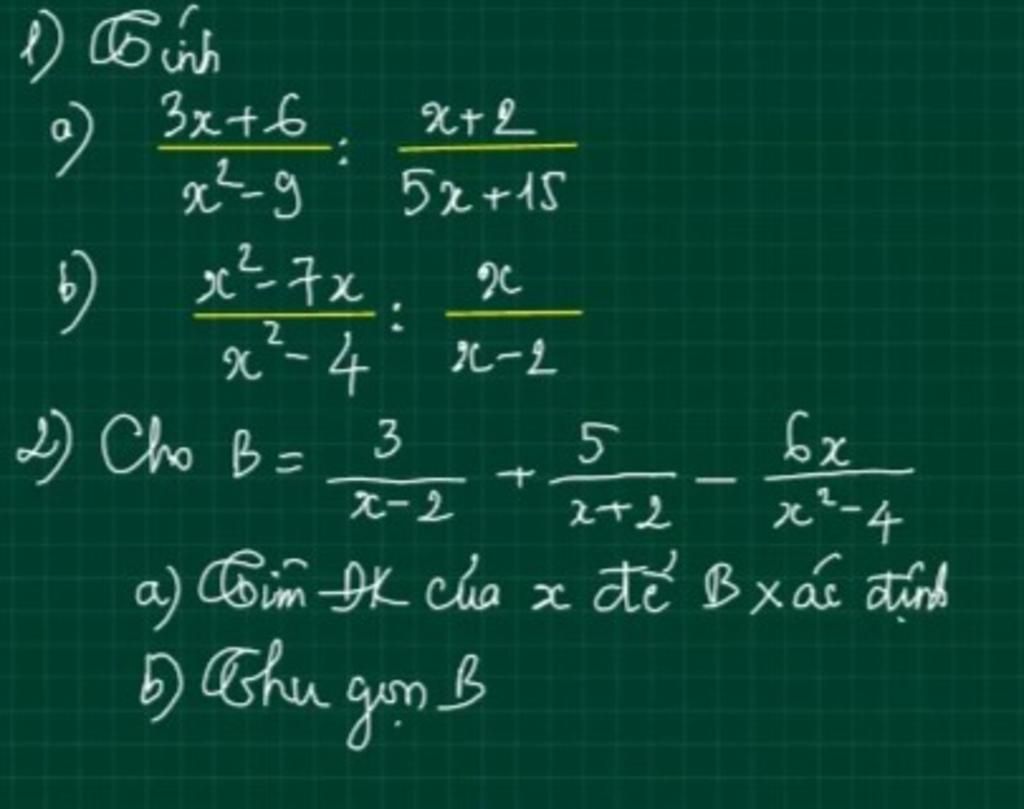 1) Tính
a) \frac{3x+6}{x^2-9} : \frac{x+2}{5x+15}
b) \frac{x^2-7x}{x^2-4} : \frac{x}{x-2}
2) Cho B = \frac{3}{x-2} + \frac{5}{x+2} - \frac{6x}{x^2-4}
a) Tìm ĐK của x để B xác định
b) Thu gọn B